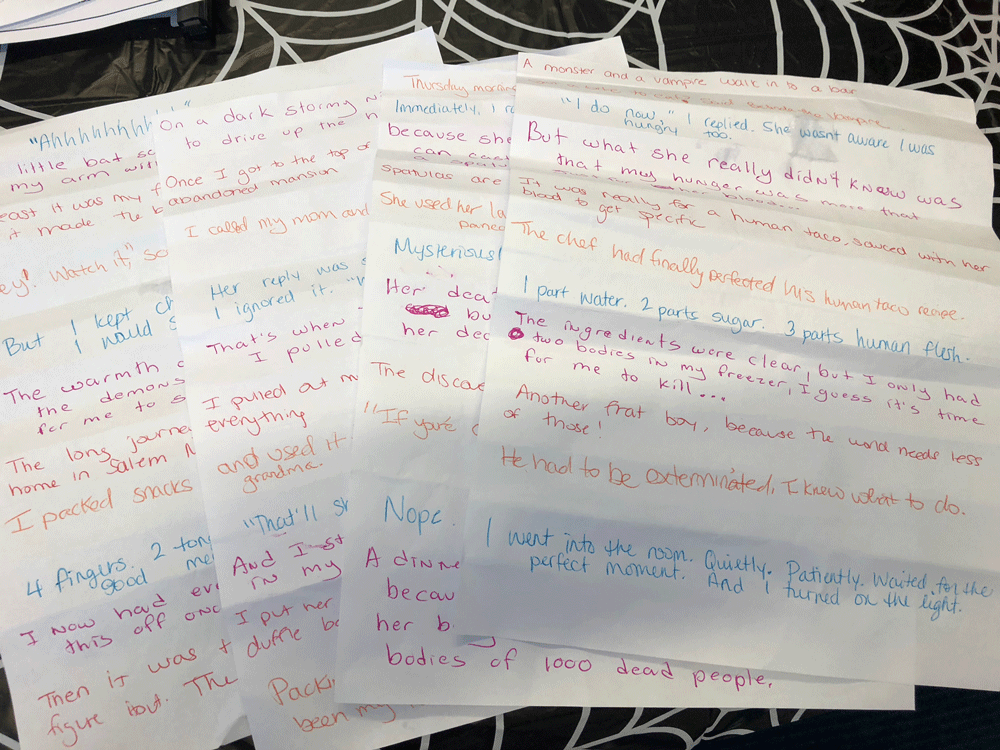 "Ahhhhhhhh
little bat
my arm
east it was my
it made the
ey! Watch it,"
But I kept
I would
The warmth
the demons
for me to
The long journe
home in Salem
I packed snacks
4 fingers. 2 ton
good
I now had
this off
Then it was
figure it out. The
On a dark stormy
to drive up the
Once I got to the top of
abandoned mansion
I called my mom and
Her reply was
I ignored it.
That's when
I pulled
I pulled at
everything
and used it
grandma.
"That'll
And I
in my
I put her
duffle
Packi
been my
Thursday morning
Immediately, I
because she
can
spatulas are
She used her
Mysterious
Her
bu
her
The
"If you're
Nope.
A
becau
her b
bodies of 1000 dead people.
A monster and a vampire walk in to a bar
"I do now," I replied. She wasnt aware I was
hungry too.
But what she really didn't know was
that my hunger was more that
It was really for a human taco, sauced with her
blood to get spicific
The chef had finally perfected his human taco recipe.
1 part water. 2 parts sugar. 3 parts human flesh.
The ingredients were clear, but I only had
two bodies in my freezer, I guess it's time
for me to kill...
Another frat boy, because the world needs less
of those!
He had to be exterminated, I knew what to do.
I went into the room. Quietly. Patiently. Waited for the
perfect moment. And I turned on the light.